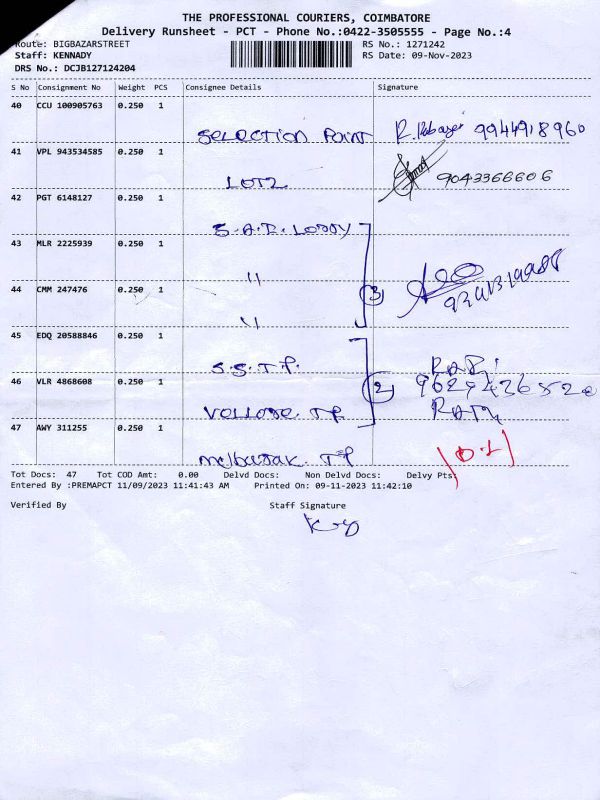 THE PROFESSIONAL COURIERS, COIMBATORE
Delivery Runsheet - PCT - Phone No.:0422-3505555 - Page No.:4
Route: BIGBAZARSTREET RS No.: 1271242
Staff: KENNADY RS Date: 09-Nov-2023
DRS No.: DCJB127124204
S No Consignment No Weight PCS Consignee Details Signature
40 CCU 100905763 0.250 1
SELECTION POINT R. 9944918960
41 VPL 943534585 0.250 1
LOTZ 9043366606
42 PGT 6148127 0.250 1
S.A.R. LODDY
43 MLR 2225939 0.250 1
"
44 CMM 247476 0.250 1 3
"
45 EDQ 20588846 0.250 1
S.S.T.P.
46 VLR 4868608 0.250 1 2 9629436520
VELLORE. T.P.
47 AWY 311255 1 0.250
T P
Tot Docs: 47 Tot COD Amt: 0.00 Delvd Docs: Non Delvd Docs: Delvy Pts:
Entered By :PREMAPCT 11/09/2023 11:41:43 AM Printed On: 09-11-2023 11:42:10
Verified By Staff Signature